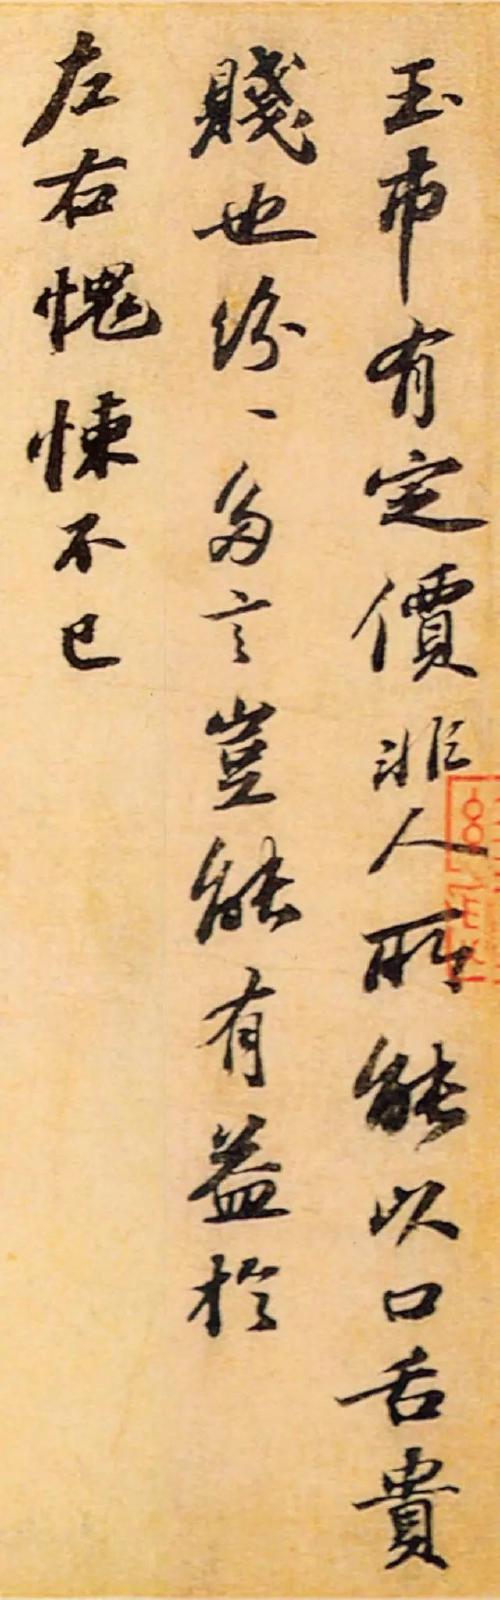 玉市有定價非人所能以口舌貴
賤也紛〻多言豈能有益於
左右愧悚不已